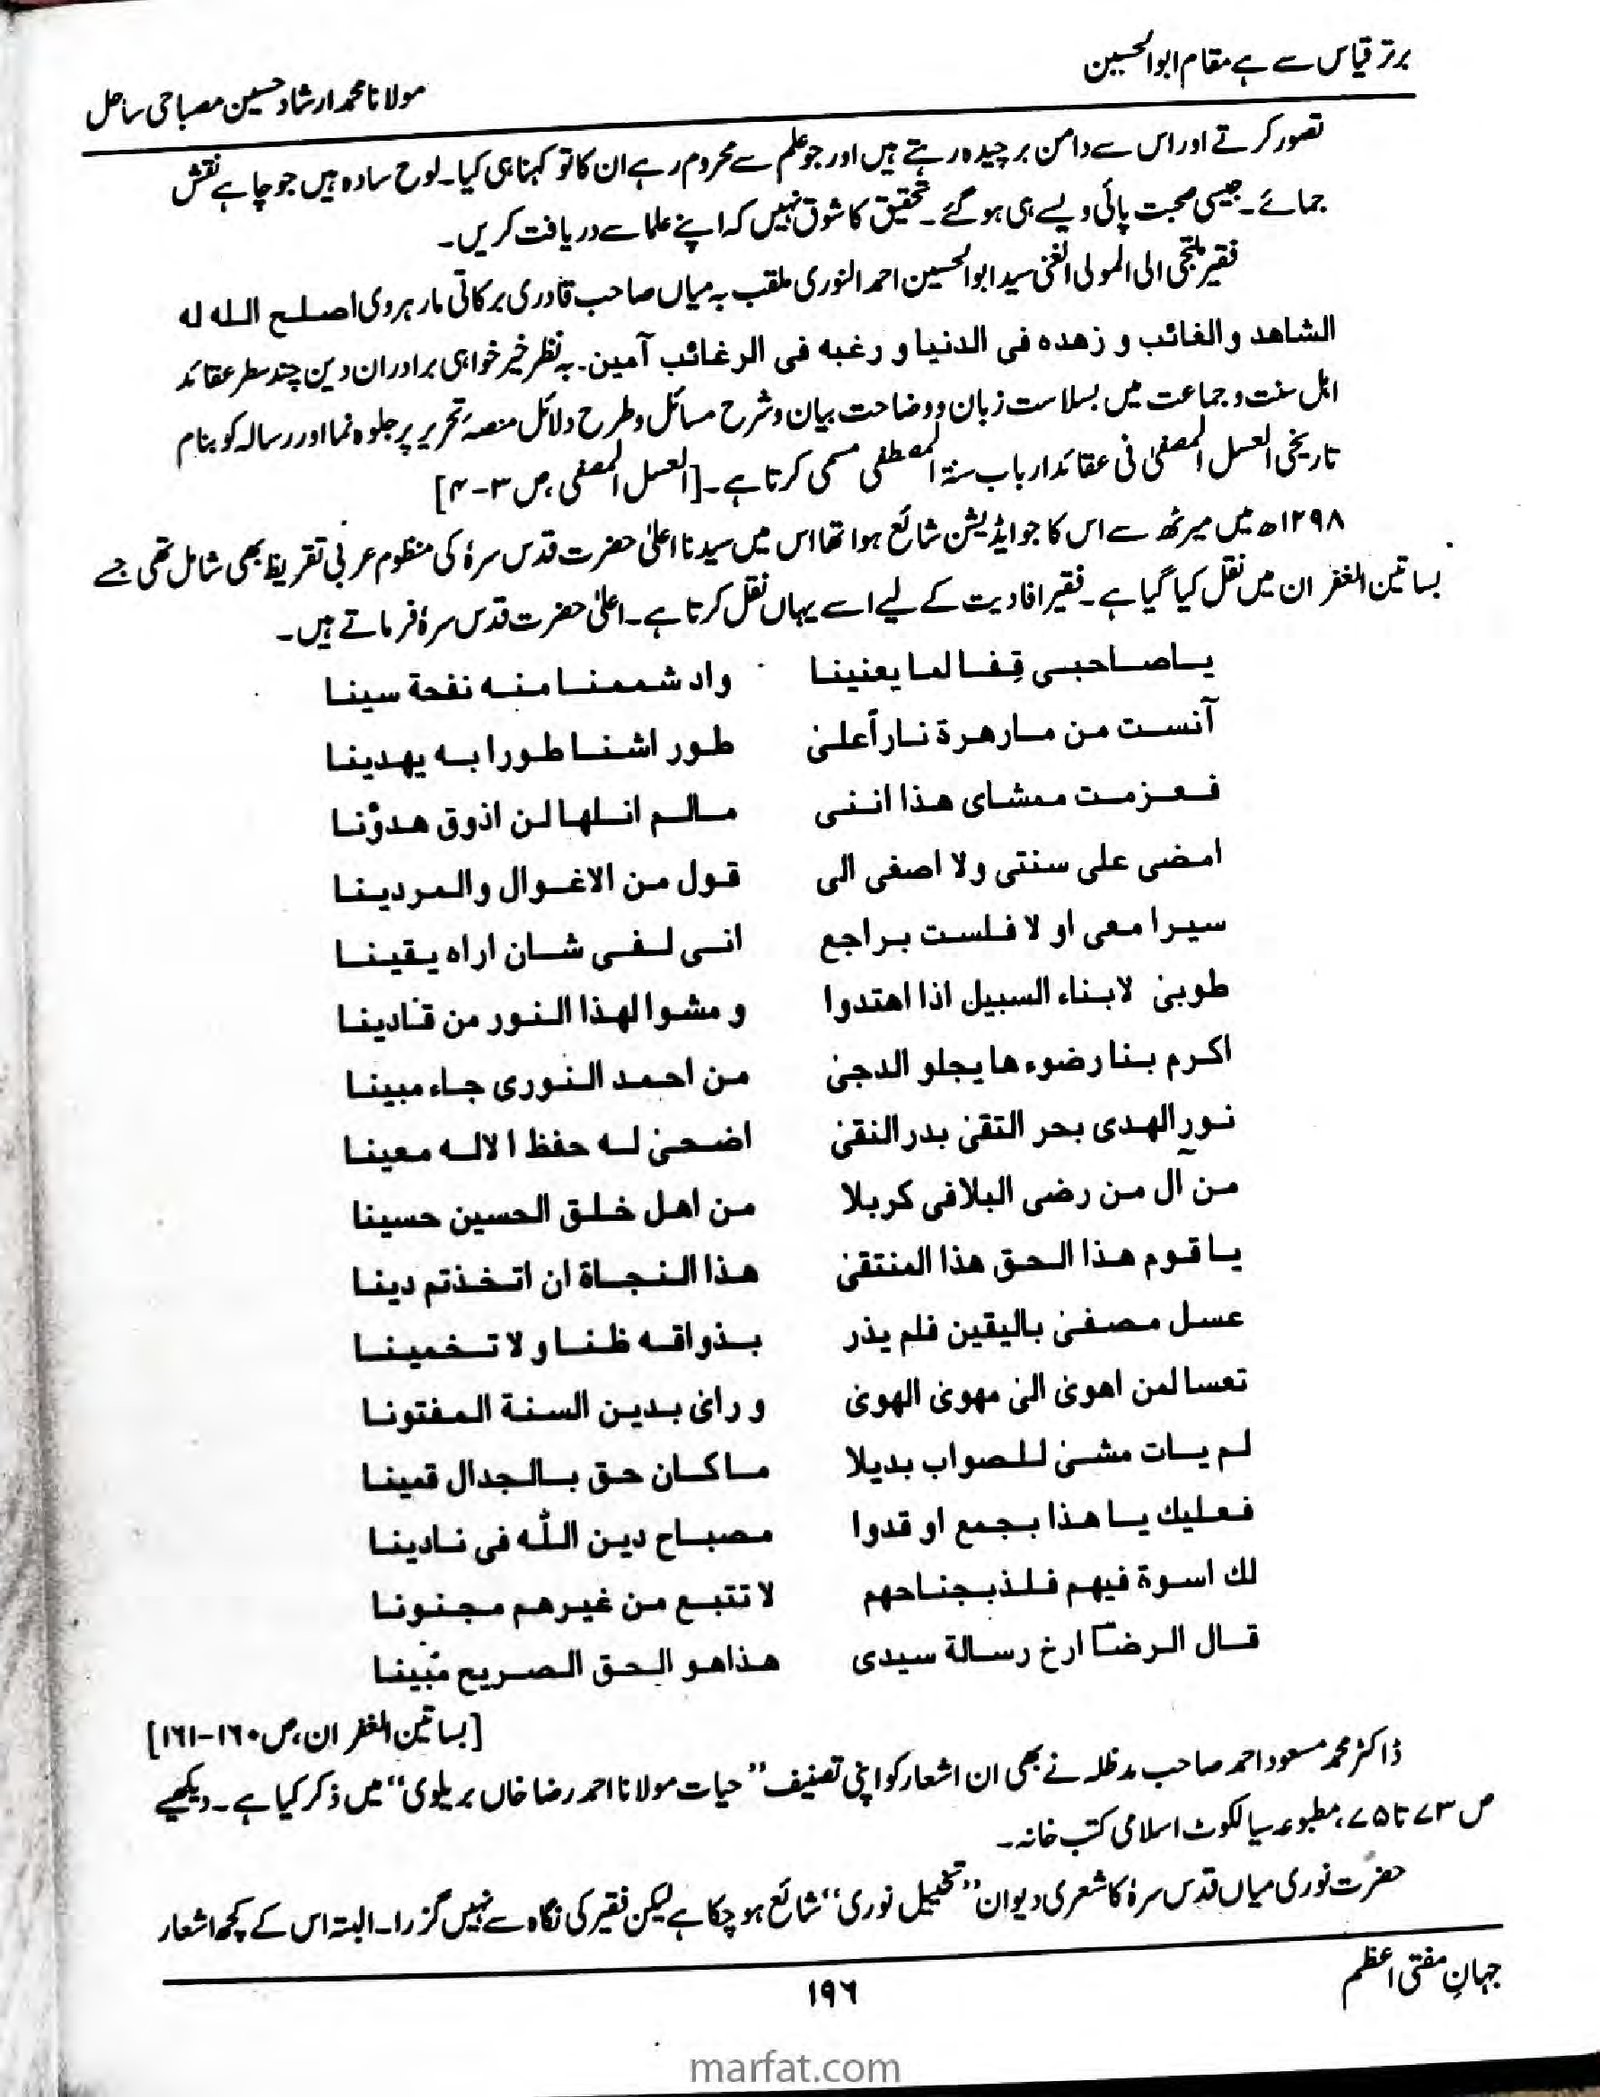 برتر قیاس سے ہے مقام ابوالحسین
مولانا محمد ارشاد حسین مصباحی ساحل
تصور کرتے اور اس سے دامن برچیدہ رہتے ہیں اور جو علم سے محروم رہے ان کا تو کہنا ہی کیا۔ لوح سادہ ہیں جو چاہے نقش
جمائے۔ جیسی صحبت پائی ویسے ہی ہوگئے۔ تحقیق کا شوق نہیں کہ اپنے علما سے دریافت کریں۔
فقیر ملتجی الی المولی الغنی سید ابوالحسین احمد النوری ملقب بہ میاں صاحب قادری برکاتی مارہروی اصلح اللہ لہ
الشاهد والغائب و زهده فی الدنیا و رغبه فی الرغائب آمین۔ بہ نظر خیر خواہی برادران دین چند سطر عقائد
اہل سنت و جماعت میں بسلاست زبان و وضاحت بیان و شرح مسائل و طرح دلائل منصۂ تحریر پر جلوہ نما اور رسالہ کو بنام
تاریخی العسل المصفیٰ فی عقائد ارباب سنۃ المصطفی مسمی کرتا ہے۔ [العسل المصفی، ص ۳-۴]
۱۲۹۸ھ میں میرٹھ سے اس کا جو ایڈیشن شائع ہوا تھا اس میں سیدنا اعلیٰ حضرت قدس سرہٗ کی منظوم عربی تقریظ بھی شامل تھی جسے
بساتین الغفران میں نقل کیا گیا ہے۔ فقیر افادیت کے لیے اسے یہاں نقل کرتا ہے۔ اعلیٰ حضرت قدس سرہٗ فرماتے ہیں۔
یاصاحبی قِفا لما یعنینا واد شممنا منه نفحة سینا
آنست من مارهرة ناراً علیٰ طور اشنا طورا به یهدینا
فعزمت ممشای هذا اننی مالم انلها لن اذوق هدوْنا
امضی علی سنتی ولا اصغی الی قول من الاغوال والمردینا
سیرا معی او لا فلست براجع انی لفی شان اراه یقینا
طوبیٰ لابناء السبیل اذا اهتدوا و مشوا لهذا النور من قادینا
اکرم بنا رضوء ها یجلو الدجیٰ من احمد النوری جاء مبینا
نور الهدی بحر التقیٰ بدر النقیٰ اضحیٰ له حفظ الاله معینا
من آل من رضی البلا فی کربلا من اهل خلق الحسین حسینا
یا قوم هذا الحق هذا المنتقیٰ هذا النجاة ان اتخذتم دینا
عسل مصفیٰ بالیقین فلم یذر بذواقه ظنا و لا تخمینا
تعسا لمن اهویٰ الیٰ مهویٰ الهویٰ و رایٰ بدین السنة المفتونا
لم یات مشیٰ للصواب بدیلا ما کان حق بالجدال قمینا
فعلیك یا هذا بجمع او قدوا مصباح دین اللّٰه فی نادینا
لك اسوة فیهم فلذ بجناحهم لا تتبع من غیرهم مجنونا
قال الرضا ارخ رسالة سیدی هذا هو الحق الصریح مُبینا
[بساتین الغفران، ص ۱۶۰-۱۶۱]
ڈاکٹر محمد مسعود احمد صاحب مدظلہ نے بھی ان اشعار کو اپنی تصنیف ”حیات مولانا احمد رضا خاں بریلوی“ میں ذکر کیا ہے۔ دیکھیے
ص ۷۳ تا ۷۵، مطبوعہ سیالکوٹ اسلامی کتب خانہ۔
حضرت نوری میاں قدس سرہٗ کا شعری دیوان ”تخییل نوری“ شائع ہوچکا ہے لیکن فقیر کی نگاہ سے نہیں گزرا۔ البتہ اس کے کچھ اشعار
جہانِ مفتی اعظم
۱۹۶
marfat.com